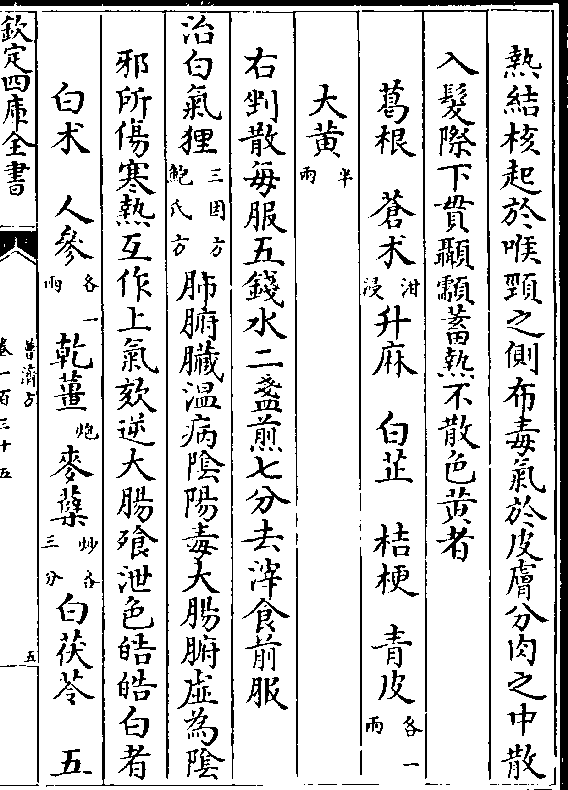 熱結核起於喉頸之側布毒氣於皮膚分肉之中散
入髮際下貫顳顬蓄熱不散色黄者
葛根 蒼术泔浸升麻 白芷 桔梗 青皮各一兩
大黄半兩
右剉散每服五錢水二盞煎七分去滓食前服
治白氣狸三因方鮑氏方 肺腑臓温病陰陽毒大腸腑虚為陰
邪所傷寒熱互作上氣欬逆大腸飱泄色皓皓白者
白术 人參各一兩 乾薑炮 麥蘖炒各三分白茯苓 五
欽定四庫全書
普濟方
卷一百三十五
五